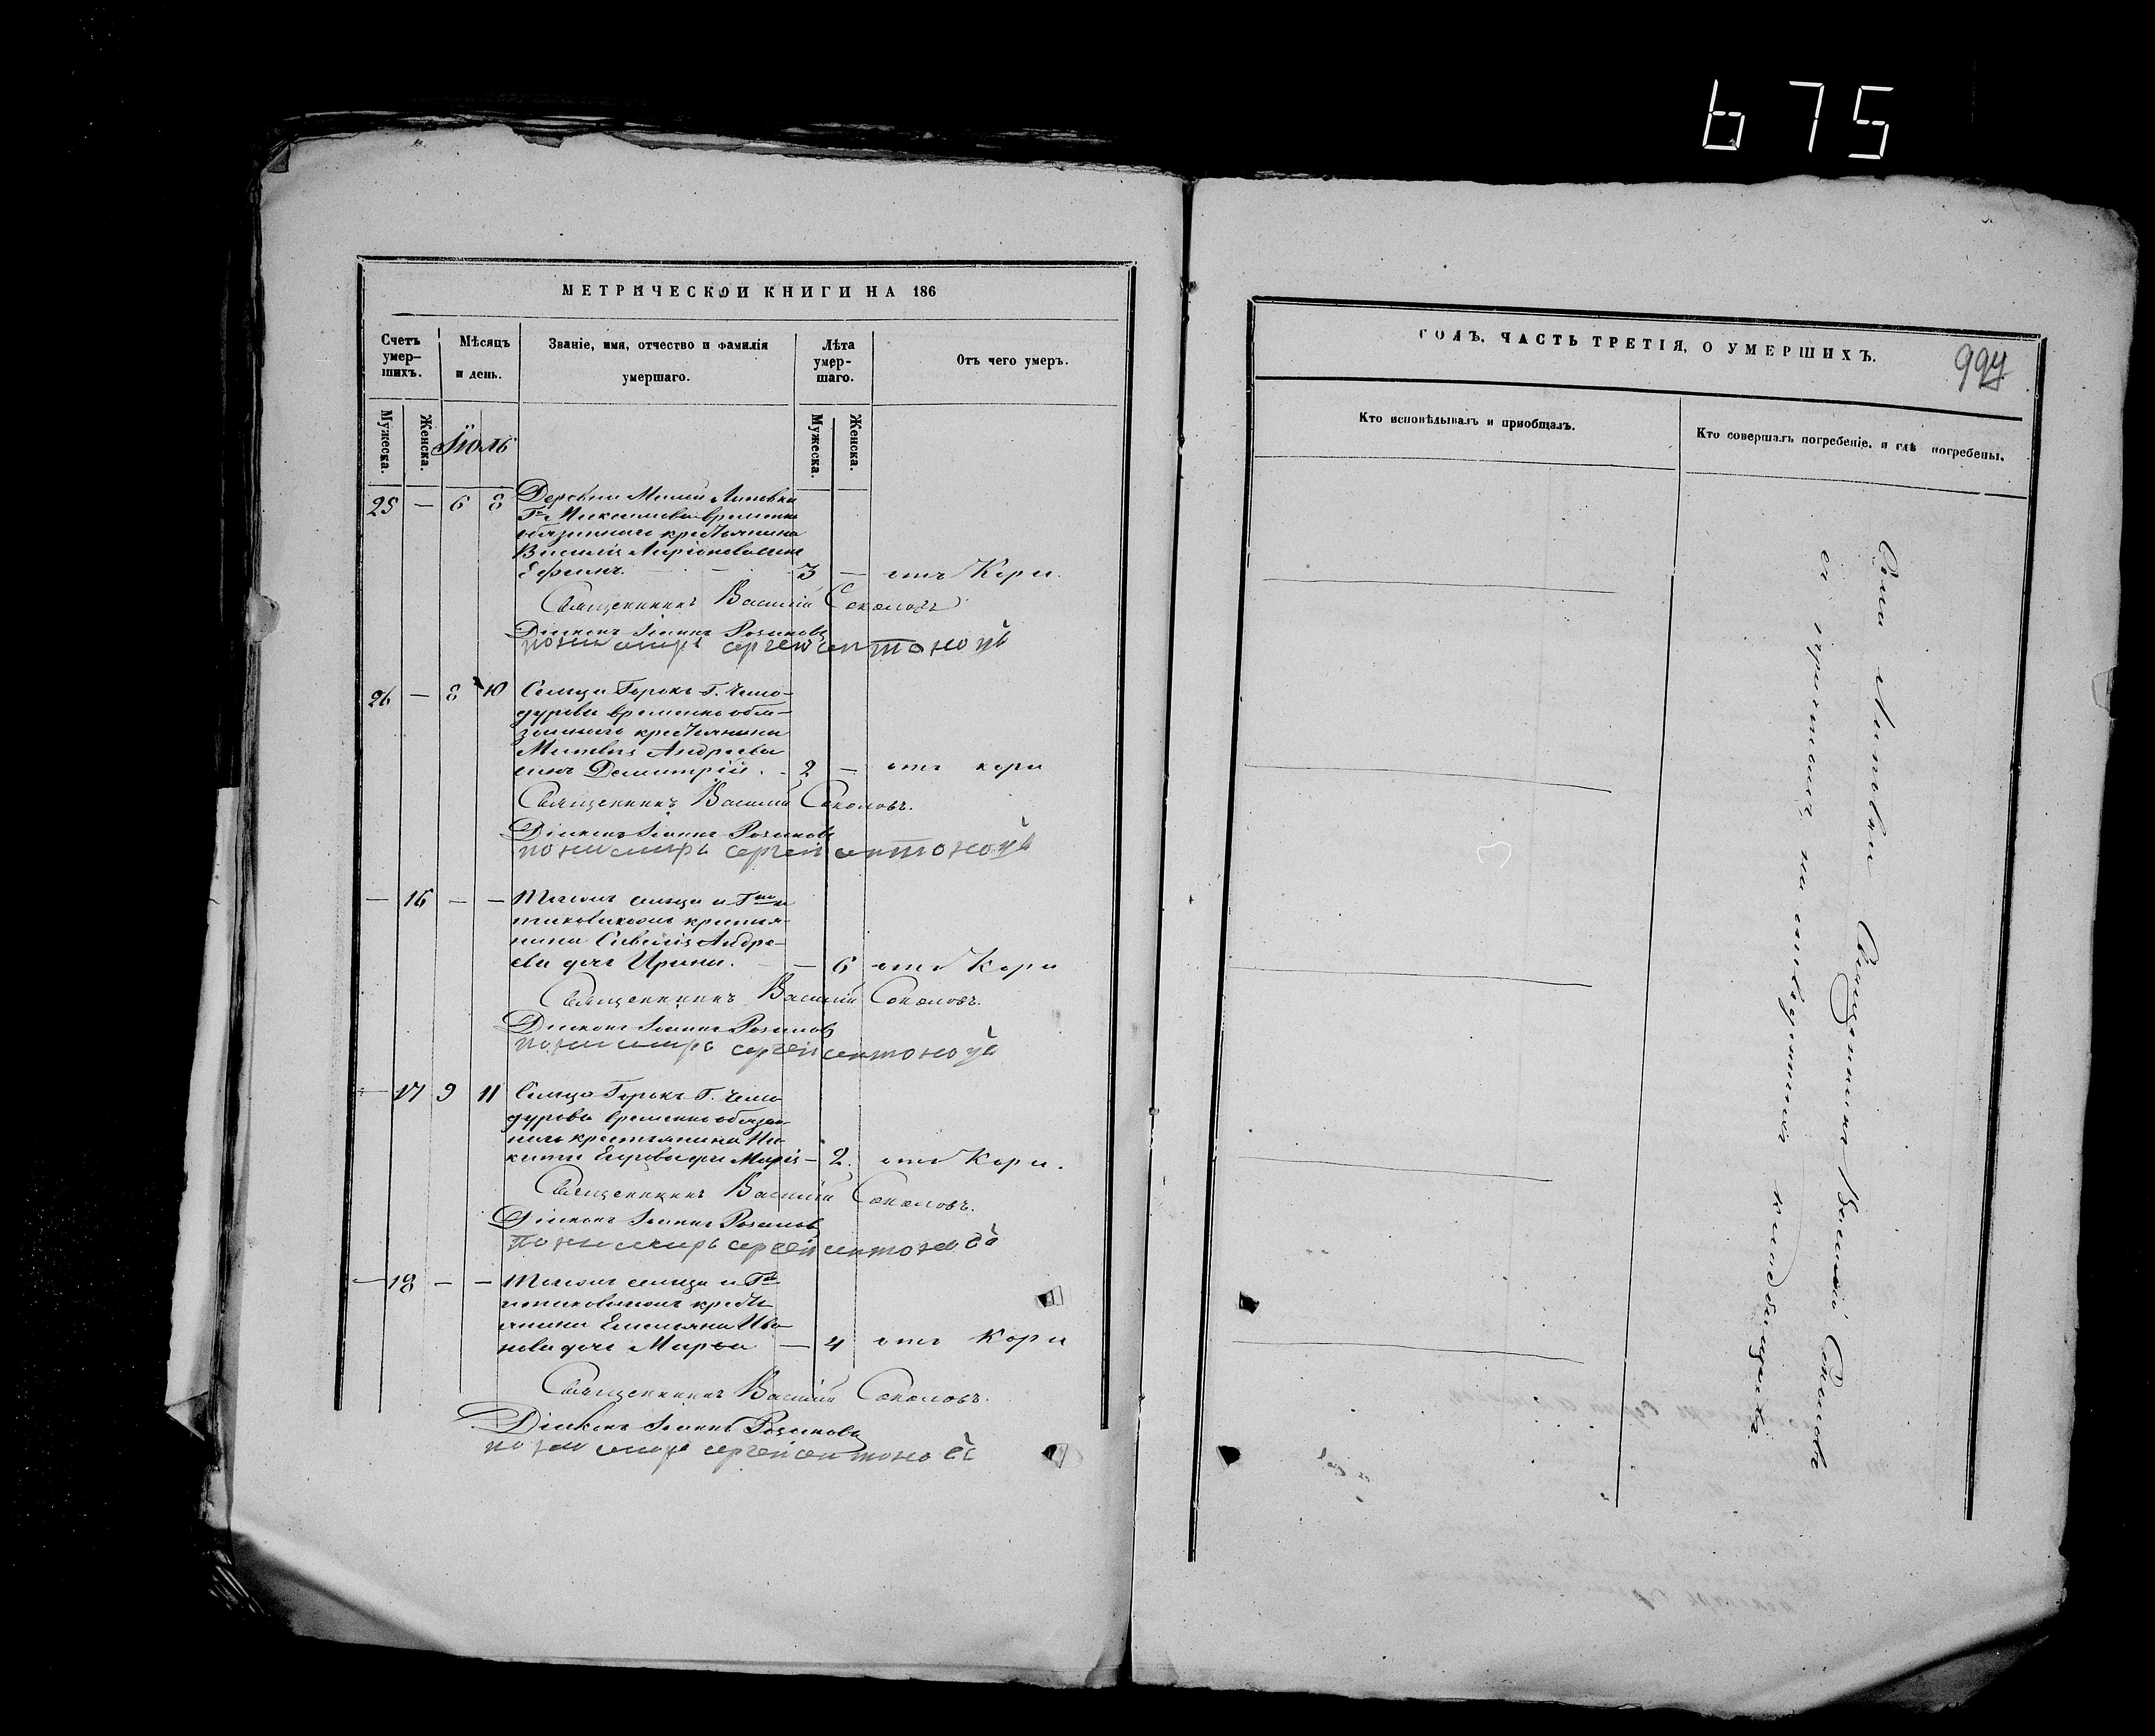 675
МЕТРИЧЕСКОЙ КНИГИ НА 186
Счетъ умер-шихъ.
Мѣсяцъ и день.
Званіе, имя, отчество и фамилія умершаго.
Лѣта умер-шаго.
Отъ чего умеръ.
Мужеска.
Женска.
Іюль
Мужеска.
Женска.
25 — 6 8 Деревни Малой Липовки
Г. временно
обязаннаго крестьянина
Василія Ларіонова сынъ
Ефимъ. 3 — отъ Кори.
Священникъ Василій Соколовъ
Діаконъ Іоаннъ Розановъ
пономарь сергей антоновъ
26 — 8 10 Сельца Горокъ Г. Чемо-
дурова временно обя-
заннаго крестьянина
Матвея Андреева
сынъ Димитрій. 2 — отъ кори
Священникъ Василій Соколовъ.
Діаконъ Іоаннъ Розановъ
пономарь сергей антоновъ
— 16 — — Тогожъ сельца и Гна
такового жъ крестья-
нина Савелія Андре-
ева дочь Ирина. — 6 отъ Кори
Священникъ Василій Соколовъ.
Діаконъ Іоаннъ Розановъ
пономарь сергей антоновъ
— 17 9 11 Сельца Горокъ Г. Чемо
дурова временно обязан
наго крестьянина Ни-
киты Егорова дочь Марія — 2. отъ Кори.
Священникъ Василій Соколовъ.
Діаконъ Іоаннъ Розановъ
пономарь сергей антоновъ
— 18 — — Тогожъ сельца и Гна
такового жъ кресть
янина Емельяна Ива
нова дочь Марѳа — 4 отъ Кори
Священникъ Василій Соколовъ.
Діаконъ Іоаннъ Розановъ
пономарь сергей антоновъ
ГОДЪ, ЧАСТЬ ТРЕТІЯ, О УМЕРШИХЪ.
Кто исповѣдывалъ и пріобщалъ.
Кто совершалъ погребеніе, и гдѣ погребены.
Села Липовки Священникъ Василій Соколовъ
съ причтомъ, на отведенномъ кладбищѣ